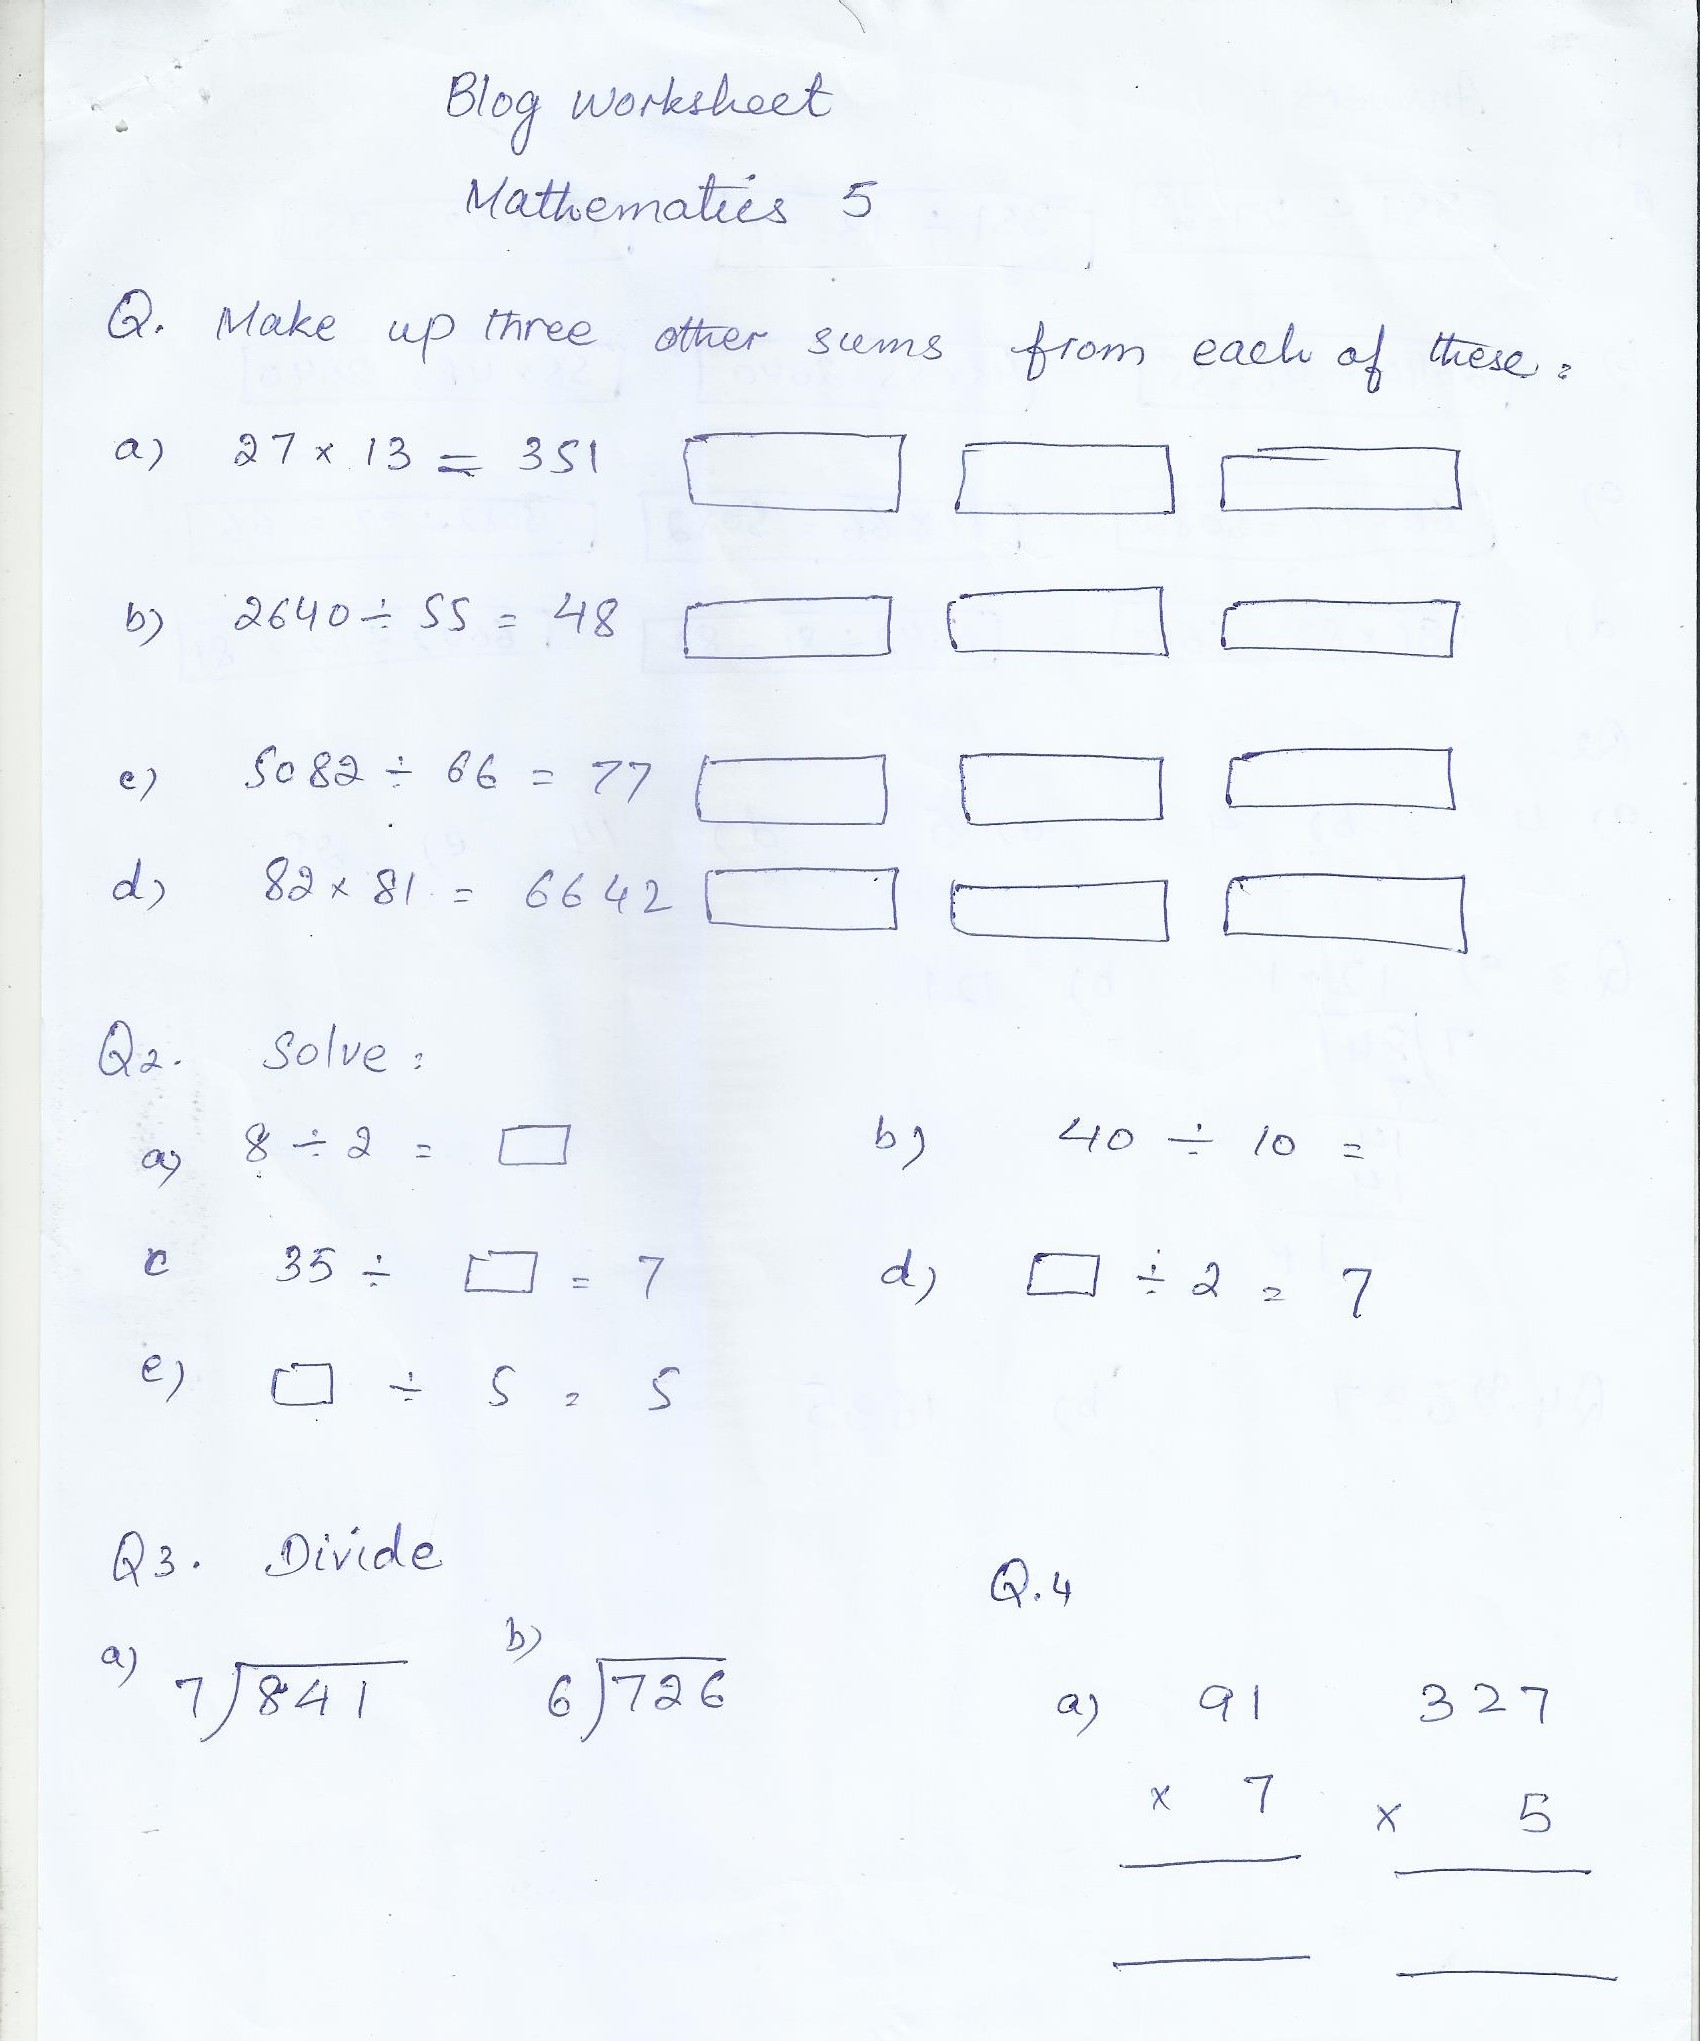 Blog worksheet
Mathematics 5
Q. Make up three other sums from each of these:
a) 27 x 13 = 351
b) 2640 ÷ 55 = 48
c) 5082 ÷ 66 = 77
d) 82 x 81 = 6642
Q2. Solve:
a) 8 ÷ 2 = □
b) 40 ÷ 10 =
c 35 ÷ □ = 7
d) □ ÷ 2 = 7
e) □ ÷ 5 = 5
Q3. Divide
a) 7)841
b) 6)726
Q.4
a) 91 327
x 7 x 5